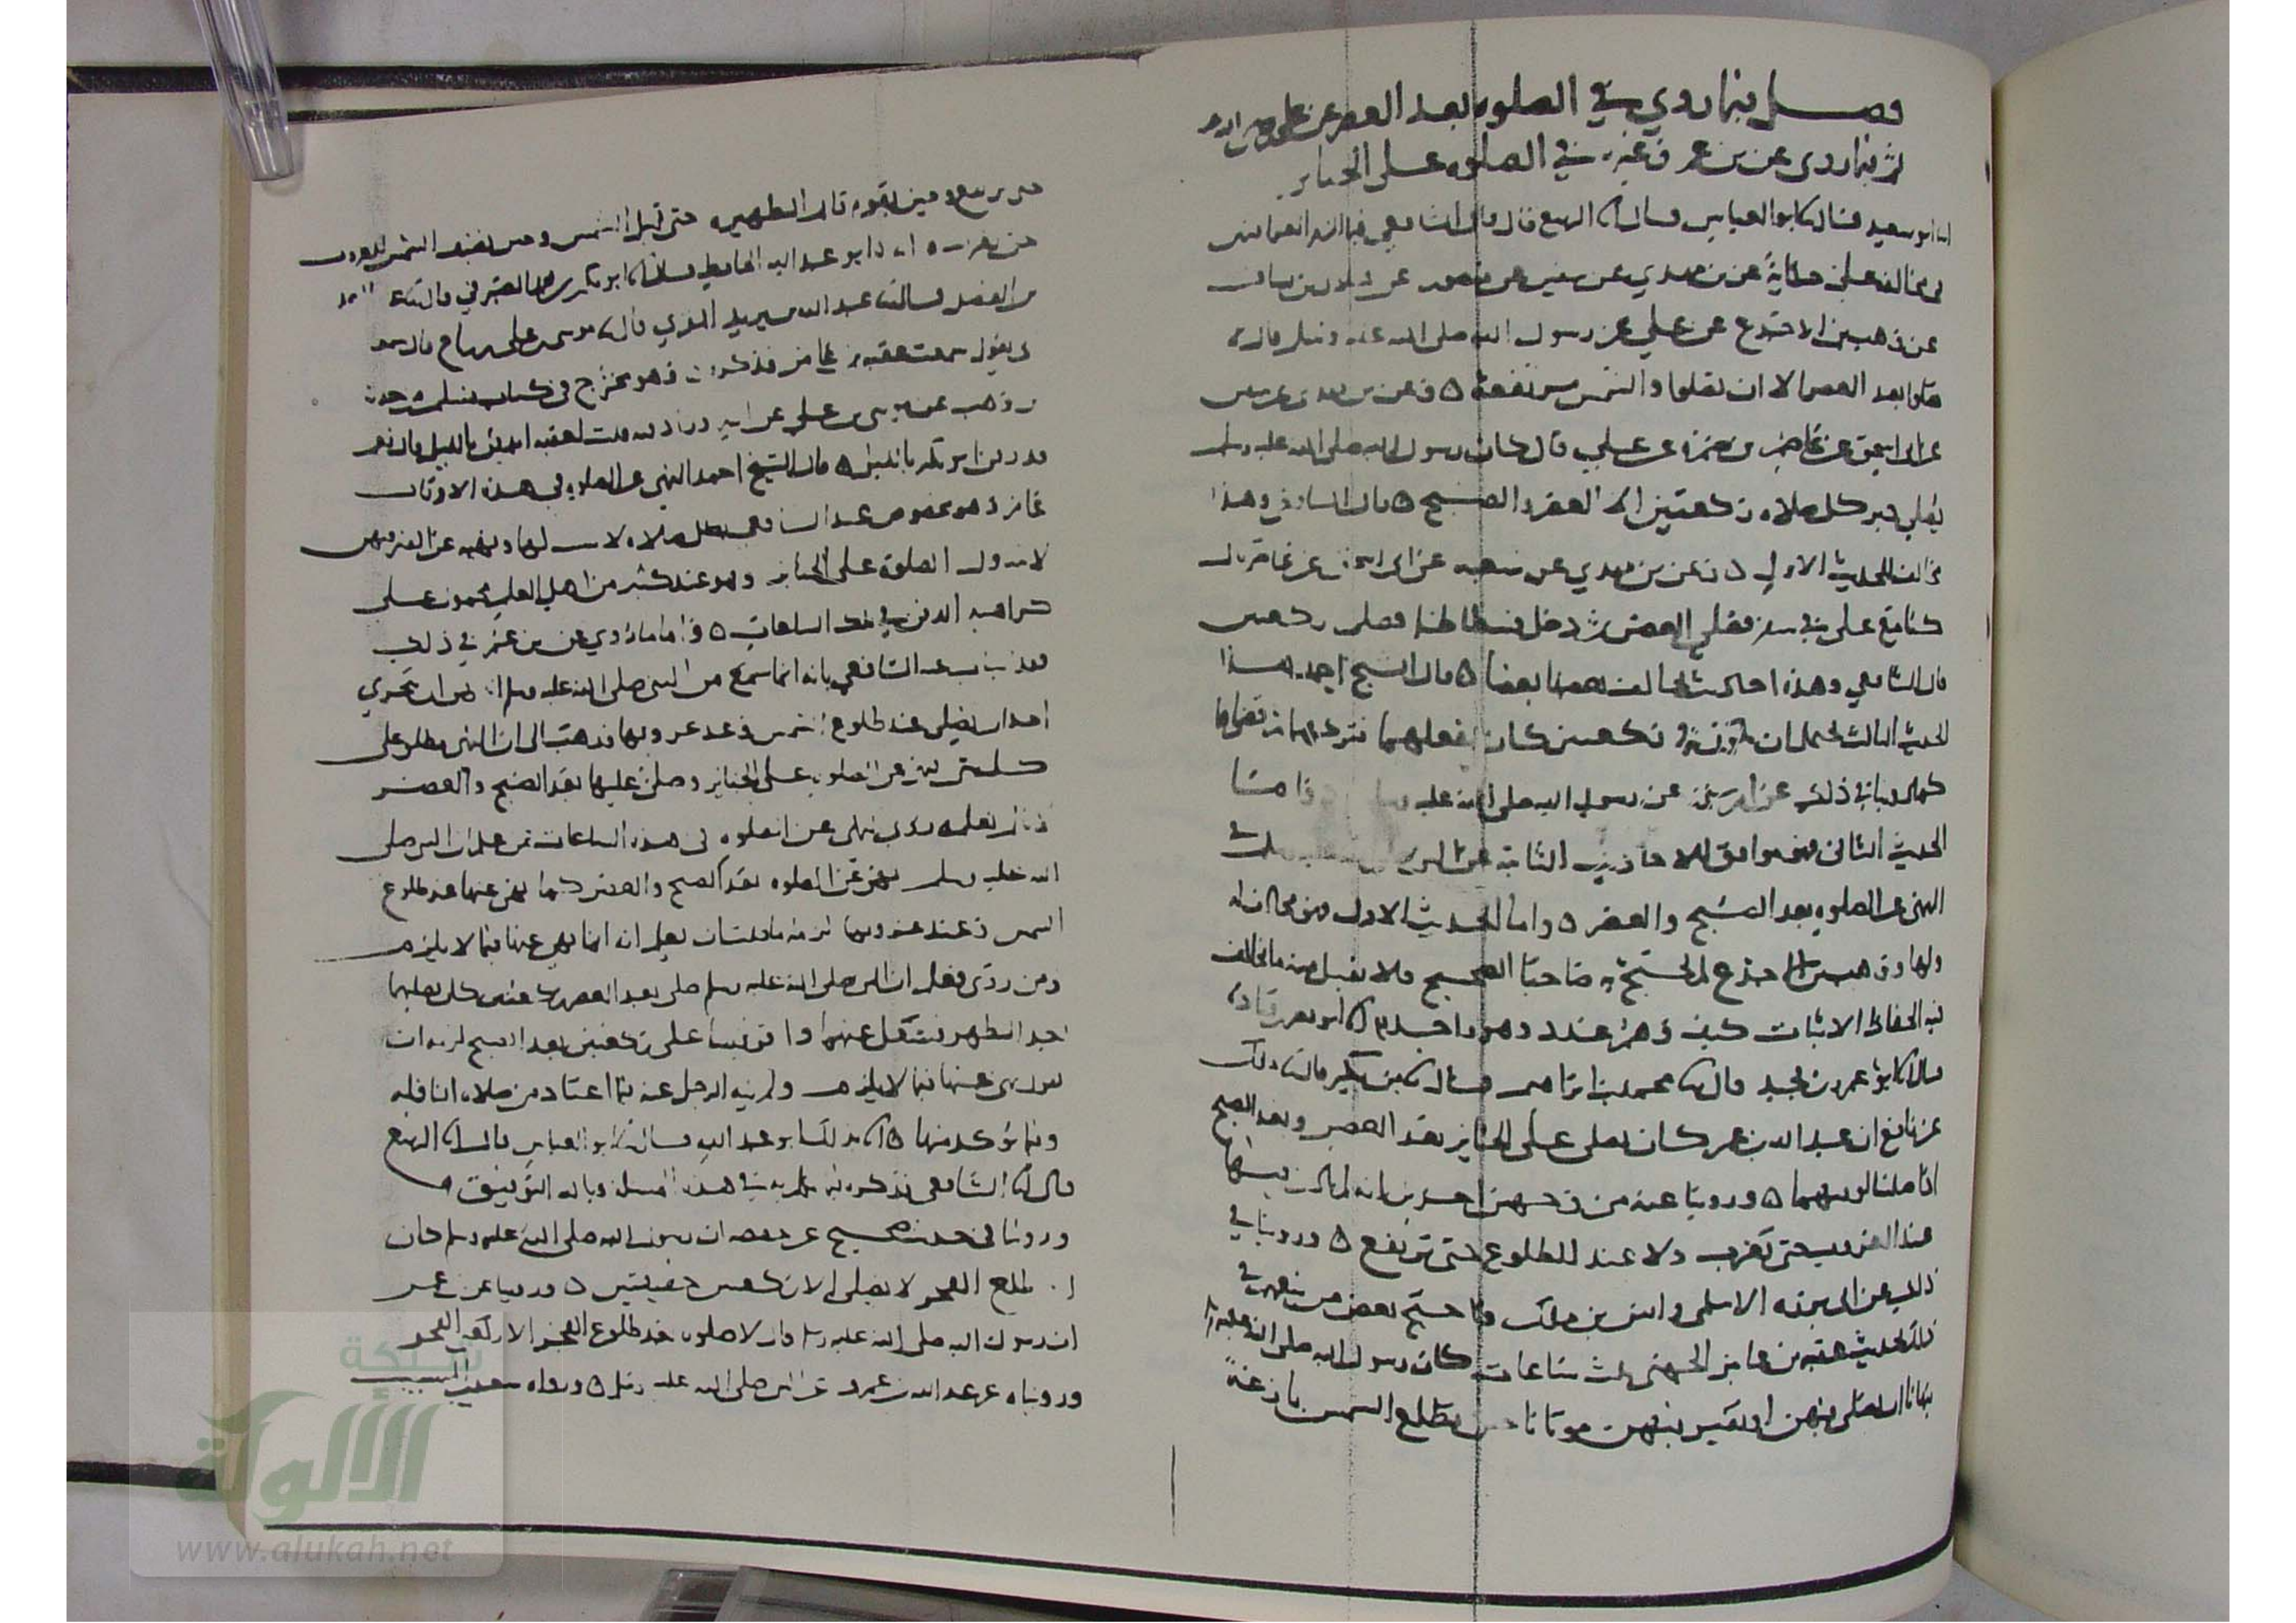 فصل فيما روي في الصلوه بعد العصر عن علي رضي الله عنه
ثم فيما روى عن بن عمر وغيره في الصلوه على الجنايز
ابو سعيد قال ابو العباس قال الربيع قال قال الشافعي فيما
عن بن مهدي عن سفين عن منصور عن هلال بن يساف
عن وهب بن الاجدع عن علي عن رسول الله صلى الله عليه وسلم قال لا
تصلوا بعد العصر الا ان تصلوا والشمس مرتفعة ٥ وعن بن مهدي عن سفين
عن ابي اسحق عن عاصم بن ضمرة عن علي قال كان رسول الله صلى الله عليه وسلم
يصلي دبر كل صلاه ركعتين الا العصر والصبح ٥ قال الشافعي وهذا
يخالف الحديث الاول ٥ وعن بن مهدي عن شعبه عن ابي اسحق عن عاصم قال
كنا مع علي في سفر فصلى العصر ثم دخل فسطاطه فصلى ركعتين
قال الشافعي وهذه احاديث يخالف بعضها بعضا ٥ قال الشيخ احمد هذا
الحديث الثالث يحتمل ان يكون ركعتين كان يفعلهما فتركهما ثم قضاهما
كما روينا في ذلك عن ام سلمة عن رسول الله صلى الله عليه وسلم
الحديث الثاني فهو موافق للاحاديث الثابته عن النبي
النهي عن الصلوه بعد الصبح والعصر ٥ واما الحديث الاول فهو مخالف له
ولها ووهب بن الاجدع لم يحتج به صاحبا الصحيح فلا يقبل منه ما يخالف
فيه الحفاظ الاثبات كيف وهم عدد وهو واحد ٥ ابو نصر بن قتادة
قال ابو عمرو بن نجيد قال محمد بن ابراهيم قال بن بكير قال مالك
عن نافع ان عبد الله بن عمر كان يصلي على الجنايز بعد العصر وبعد الصبح
اذا صليتا لوقتهما ٥ وروينا عنه من وجهين اخرين انه لم يكن يصليها
عند الغروب حتى تغرب ولا عند الطلوع حتى ترتفع ٥ وروينا في
ذلك عن ابي برزه الاسلمي وانس بن مالك واحتج بعض من
ذلك بحديث عقبه بن عامر الجهني ثلث ساعات كان رسول الله صلى الله عليه وسلم
ينهانا ان نصلي فيهن او نقبر فيهن موتانا حين تطلع الشمس بازغة
حتى ترتفع وحين يقوم قايم الظهيره حتى تميل الشمس وحين تضيف الشمس للغروب
حتى تغرب ٥ ابو عبد الله الحافظ قال ابو بكر الصيرفي قال
بن الفضل قال عبد الله بن يزيد المقري قال موسى بن علي بن رباح قال سمعت
ابي يقول سمعت عقبه بن عامر فذكره وهو مخرج في كتاب مسلم من حديث
بن وهب عن موسى بن علي عن ابيه وزاد فيه قلت لعقبه ايدفن بالليل قال نعم
قد دفن ابو بكر بالليل ٥ قال الشيخ احمد النهي عن الصلوه في هذه الاوقات
عام وهو مخصوص عند الشافعي بكل صلاه لا سبب لها ونهيه عن القبر فيهن
لا يتناول الصلوة على الجنايز وهو عند كثير من اهل العلم محمول على
كراهيه الدفن في تلك الساعات ٥ واما ما روي عن بن عمر في ذلك
فقد اجاب عنه الشافعي بانه انما سمع من النبي صلى الله عليه وسلم النهي ان يتحرى
احد ان يصلي عند طلوع الشمس وعند غروبها فذهب الى ان النهي مطلق على
كل شي نهي عن الصلوه على الجنايز وصلى عليها بعد الصبح والعصر
لانا لم نعلمه روى نهي عن الصلوه في هذه الساعات فمن علم ان النبي صلى
الله عليه وسلم نهى عن الصلوه بعد الصبح والعصر كما نهى عنها عند طلوع
الشمس وعند غروبها لزمه ما قلنا ان يعلم انه انما نهى عنها فيما لا يلزم
ومن روى فعلم ان النبي صلى الله عليه وسلم صلى بعد العصر ركعتين كان يصليهما
بعد الظهر فشغل عنهما واقر قيسا على ركعتين بعد الصبح لزمه ان
يقول نهى عنها فيما لا يلزم ولم ينه الرجل عنه فيما اعتاد من صلاه النافله
وفيما تؤكد منها ٥ اخبرنا بذلك ابو عبد الله قال ابو العباس قال الربيع
قال الشافعي فذكره في هذه المسله وبالله التوفيق
وروينا في حديث صحيح عن حفصه ان رسول الله صلى الله عليه وسلم كان
اذا طلع الفجر لا يصلي الا ركعتين خفيفتين ٥ وروينا عن بن عمر
ان رسول الله صلى الله عليه وسلم قال لا صلوه بعد طلوع الفجر الا ركعتي الفجر
ورويناه عن عبد الله بن عمرو عن النبي صلى الله عليه وسلم ٥ ورواه سعيد بن المسيب
شبكة
الألوكة
www.alukah.net